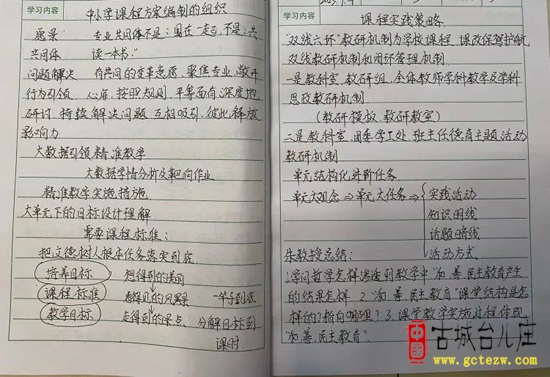 学习内容 中小学课程方案编制的组织
愿景 专业共同体不是:围在一起;不是:共
共同体 读一本书."
问题解决 有共同的变革意愿,聚焦专业,敞开
行为引领 心扉,按照规则,平等而有深度地
研讨,持续解决问题,互相吸引,彼此释放
影响力
大数据引领精准教学
大数据学情分析及靶向作业
精准教学实施措施
大单元下的目标设计理解
需要课程标准:
把立德树人根本任务落实到底.
培养目标 想得到的美丽
课程标准 看得见的风景 一竿子到底
教学目标 走得到的景点,分解目标到
课时
学习内容 课程实践策略
"双线六环"教研机制为学校课程、课改保驾护航
双线教研机制和闭环管理机制.
一是教科室,教研组,全体教师学科教学及学科
思政教研机制.
(教研模板,教研教室)
二是教科室,团委学工处,班主任德育主题活动
教研机制
单元结构化进阶任务
单元大观念⇒单元大任务⇒ 实践活动
知识明线
话题暗线
活动方式
朱教授总结:
1.学问哲学怎样渗透到教学中"和善民主教育"产生
的结果怎样 2."和善民主教育"课堂结构是怎
样的?指向哪里?3.课堂教学实施过程体现
"和善民主教育"
古城台儿庄
www.gctezw.com